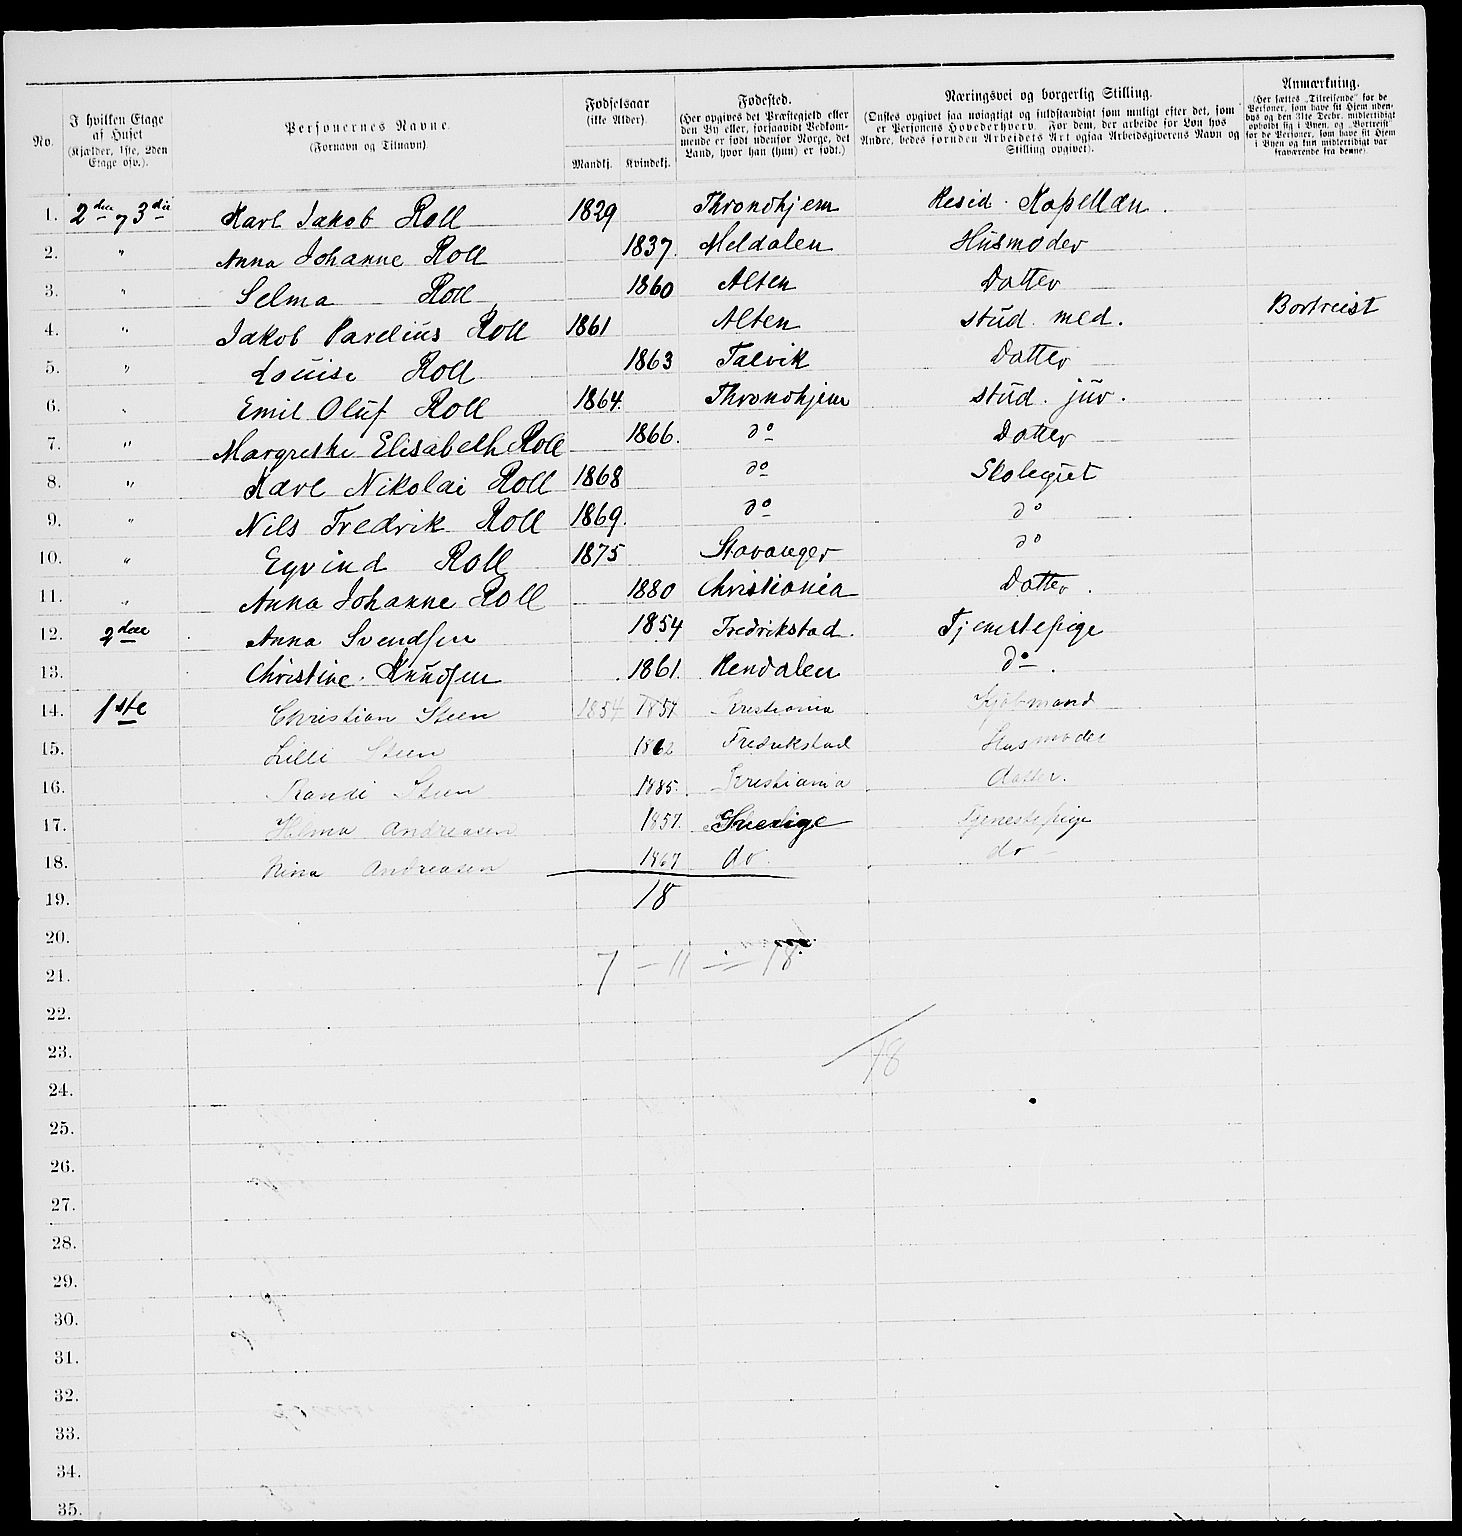 No.
I hvilken Etage af Huset (Kjælder, 1ste, 2den Etage osv.).
Personernes Navne. (Fornavn og Tilnavn)
Fødselsaar (ikke Alder).
Mandkj. Kvindekj.
Fødested. (Her opgives det Præstegjeld eller den By eller, forsaavidt Vedkommende er født udenfor Norge, det Land, hvor han (hun) er født.)
Næringsvei og borgerlig Stilling. (Ønskes opgivet saa nøiagtigt og fuldstændigt som muligt efter det, som er Personens Hovederhverv. For dem, der arbeide for Løn hos Andre, bedes foruden Arbeidets Art ogsaa Arbeidsgiverens Navn og Stilling opgivet).
Anmærkning. (Her sættes „Tilreisende" for de Personer, som have sit Hjem udenbys og den 31te Decbr. midlertidigt opholdt sig i Byen, og „Bortreist" for de Personer, som have sit Hjem i Byen og kun midlertidigt var fraværende fra denne).
1. 2den 3die Karl Jakob Roll 1829 Throndhjem Resid. Kapellan.
2. " Anna Johanne Roll 1837. Meldalen Husmoder
3. " Selma Roll 1860 Alten Datter
4. " Jakob Parelius Roll 1861 Alten stud. med. Bortreist
5. " Louise Roll 1863 Talvik Datter
6. " Emil Oluf Roll 1864. Throndhjem stud. jur.
7. " Margrethe Elisabeth Roll 1866. do Datter
8. " Karl Nikolai Roll 1868 do Skolegut
9. " Nils Fredrik Roll 1869. do do
10. " Eyvind Roll 1875 Stavanger do
11. " Anna Johanne Roll 1880 Christiania Datter.
12. 2den Anna Svendsen 1854 Fredrikstad. Tjenestepige
13. Christine Knudsen 1861. Rendalen do
14. 1ste Christian Steen 1854 1857 Kristiania Kjøbmand
15. Lilli Steen 1862 Fredrikstad Husmoder
16. Randi Steen 1885. Kristiania datter.
17. Helma Andreasen 1857. Sverige Tjenestepige
18. Nina Andreasen 1867 do. do
19. 18
20.
21. 7 – 11 – 18.
22.
23. 18
24.
25.
26.
27.
28.
29.
30.
31.
32.
33.
34.
35.